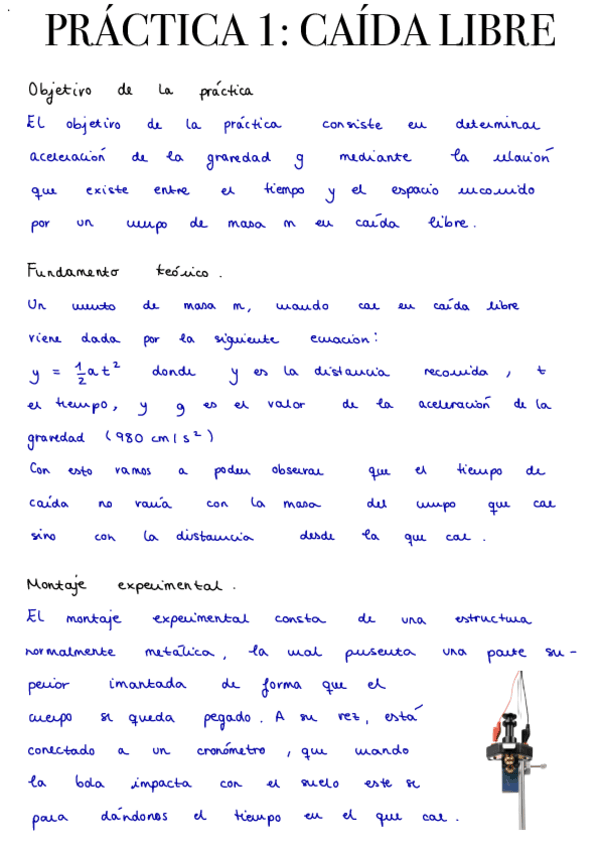 PRÁCTICA 1: CAÍDA LIBRE
Objetivo de la práctica
El objetivo de la práctica consiste en determinar
aceleración de la gravedad g mediante la relación
que existe entre el tiempo y el espacio recorrido
por un cuerpo de masa m en caída libre.
Fundamento teórico.
Un cuerpo de masa m, cuando cae en caída libre
viene dada por la siguiente ecuación:
y = 1/2 a t² donde y es la distancia recorrida, t
el tiempo, y g es el valor de la aceleración de la
gravedad (980 cm/s²)
Con esto vamos a poder observar que el tiempo de
caída no varía con la masa del cuerpo que cae
sino con la distancia desde la que cae.
Montaje experimental.
El montaje experimental consta de una estructura
normalmente metálica, la cual presenta una parte su-
perior imantada de forma que el
cuerpo se queda pegado. A su vez, está
conectado a un cronómetro, que cuando
la bola impacta con el suelo este se
para dándonos el tiempo en el que cae.